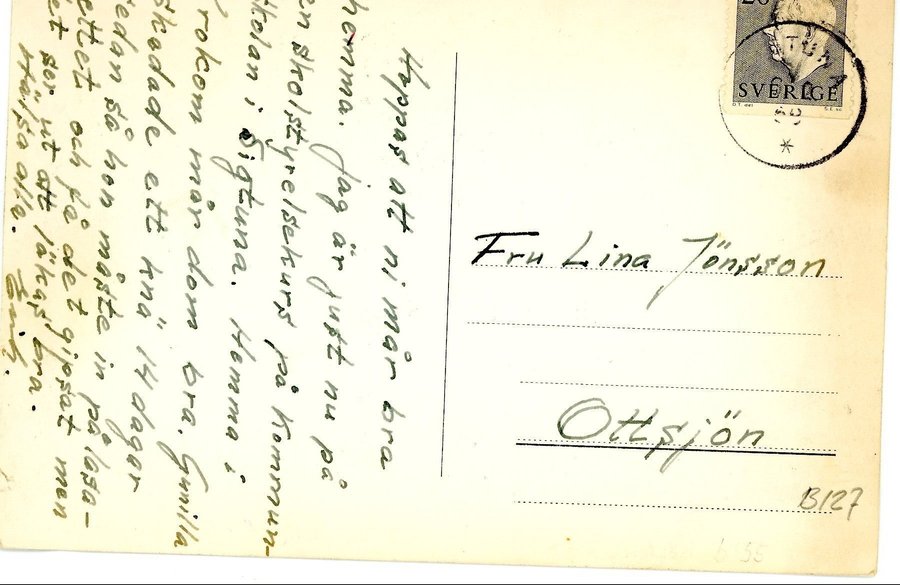 Hoppas att ni mår bra
hemma. Jag är just nu på
en skolstyrelsekurs på kommun-
skolan i Sigtuna. Hemma i
rokom mår dom bra. Gunilla
skadade ett knä 14 dagar
sedan så hon måste in på lasa-
ettet och få det gipsat men
et ser ut att läkas bra.
Hälsa alla. Erik.
SVERIGE
Fru Lina Jönsson
Ottsjön
B127